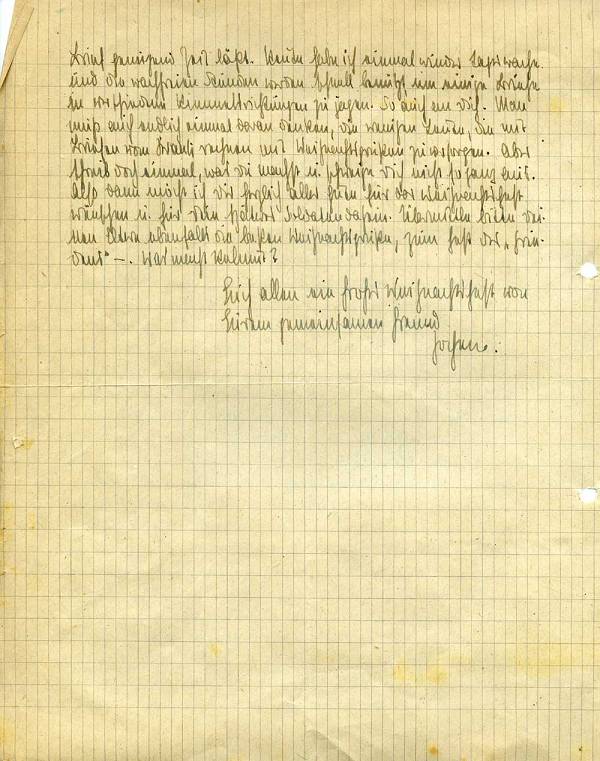 Brief genügend Zeit läßt. Heute habe ich einmal wieder Tageswache
und die wachfreien Stunden werden schnell benützt um einige Briefe
in verschiedene Himmelsrichtungen zu jagen. So auch an Dich. Man
muß auch endlich einmal daran denken, die wenigen Leute, die mit
Briefen vom rechnen mit Weihnachtsgrüßen zu versorgen. Aber
schreib doch einmal, was du machst u. schweige dich nicht so ganz aus.
Also dann möcht ich dir herzlich alles Gute für das Weihnachtsfest
wünschen u. für dein Soldatendasein. Übermittle bitte dei-
nen Eltern ebenfalls die besten Weihnachtsgrüße, zum Fest des „Frie-
dens" –. Was macht Helmut?
Euch allen ein frohes Weihnachtsfest von
Eurem gemeinsamen Freund
Jochen.